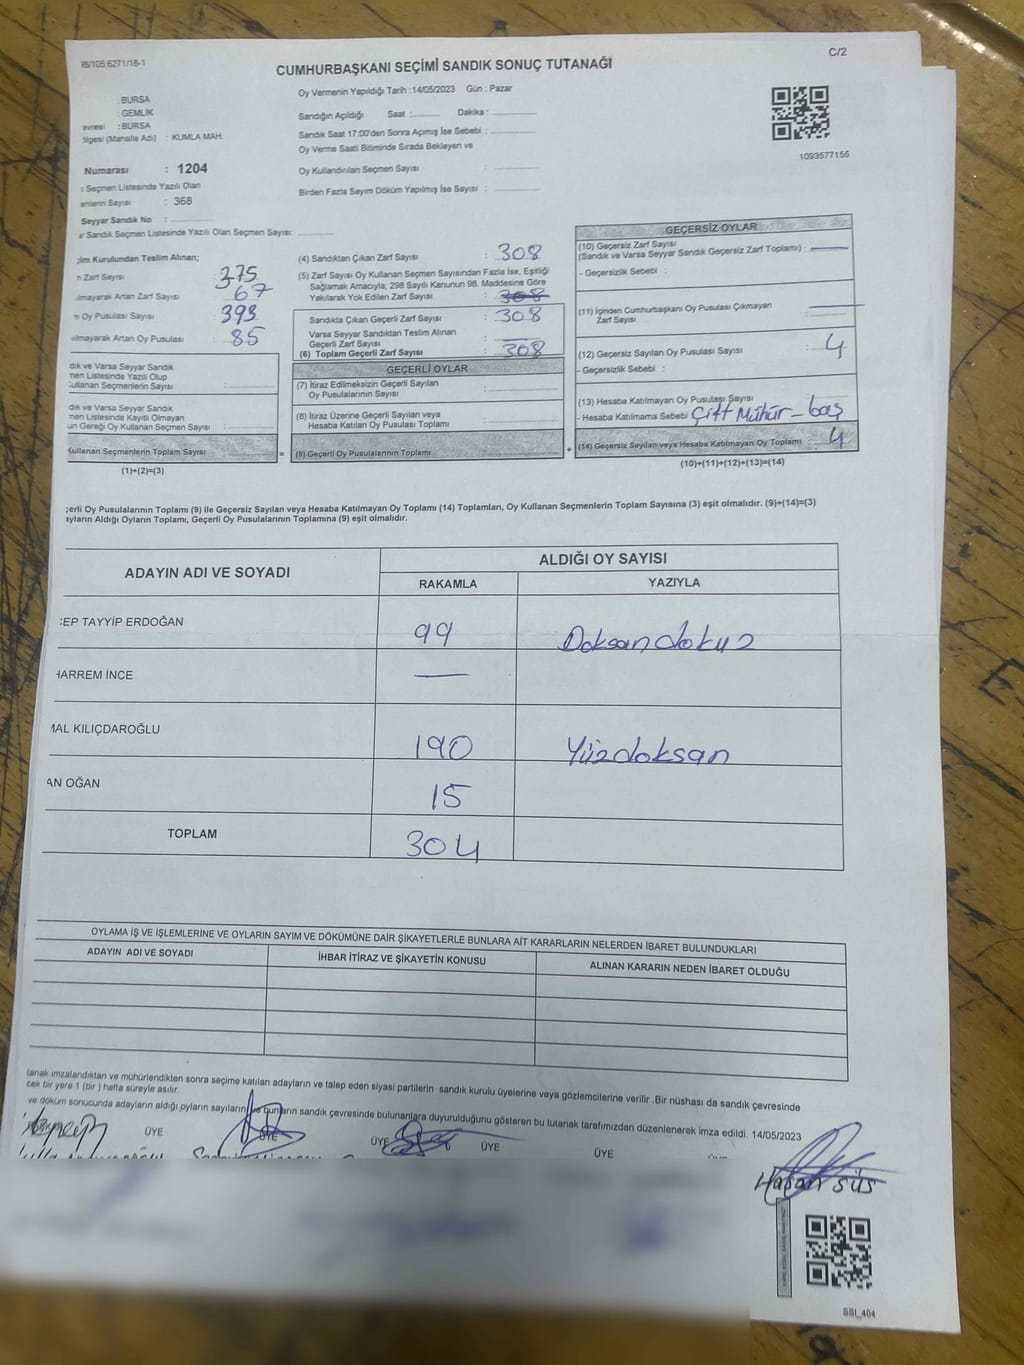 C/2
CUMHURBAŞKANI SEÇİMİ SANDIK SONUÇ TUTANAĞI
: BURSA
: GEMLİK
: BURSA
(Mahalle Adı) : KUMLA MAH.
Numarası : 1204
Seçmen Listesinde Yazılı Olan
Sayısı : 368
Seyyar Sandık No :
Sandık Seçmen Listesinde Yazılı Olan Seçmen Sayısı:
Oy Vermenin Yapıldığı Tarih :14/05/2023 Gün : Pazar
Sandığın Açıldığı Saat : Dakika :
Sandık Saat 17:00'den Sonra Açmış İse Sebebi :
Oy Verme Saati Bitiminde Sırada Bekleyen ve
Oy Kullandırılan Seçmen Sayısı :
Birden Fazla Sayım Döküm Yapılmış İse Sayısı :
1093577155
Kurulundan Teslim Alınan;
Zarf Sayısı : 375
Artan Zarf Sayısı : 67
Oy Pusulası Sayısı : 393
Artan Oy Pusulası : 85
ve Varsa Seyyar Sandık
Listesinde Yazılı Olup
Kullanan Seçmenlerin Sayısı :
ve Varsa Seyyar Sandık
Listesinde Kayıtlı Olmayan
Gereği Oy Kullanan Seçmen Sayısı :
Kullanan Seçmenlerin Toplam Sayısı
(1)+(2)=(3)
(4) Sandıktan Çıkan Zarf Sayısı : 308
(5) Zarf Sayısı Oy Kullanan Seçmen Sayısından Fazla İse, Eşitliği
Sağlamak Amacıyla; 298 Sayılı Kanunun 98. Maddesine Göre
Yakılarak Yok Edilen Zarf Sayısı : 308
Sandıkta Çıkan Geçerli Zarf Sayısı : 308
Varsa Seyyar Sandıktan Teslim Alınan
Geçerli Zarf Sayısı :
(6) Toplam Geçerli Zarf Sayısı : 308
GEÇERLİ OYLAR
(7) İtiraz Edilmeksizin Geçerli Sayılan
Oy Pusulasının Sayısı :
(8) İtiraz Üzerine Geçerli Sayılan veya
Hesaba Katılan Oy Pusulası Toplamı :
(9) Geçerli Oy Pusulalarının Toplamı
GEÇERSİZ OYLAR
(10) Geçersiz Zarf Sayısı
(Sandık ve Varsa Seyyar Sandık Geçersiz Zarf Toplamı) :
- Geçersizlik Sebebi :
(11) İçinden Cumhurbaşkanı Oy Pusulası Çıkmayan
Zarf Sayısı :
(12) Geçersiz Sayılan Oy Pusulası Sayısı : 4
- Geçersizlik Sebebi :
(13) Hesaba Katılmayan Oy Pusulası Sayısı
- Hesaba Katılmama Sebebi Çift Mühür - boş
(14) Geçersiz Sayılan veya Hesaba Katılmayan Oy Toplamı : 4
(10)+(11)+(12)+(13)=(14)
Oy Pusulalarının Toplamı (9) ile Geçersiz Sayılan veya Hesaba Katılmayan Oy Toplamı (14) Toplamları, Oy Kullanan Seçmenlerin Toplam Sayısına (3) eşit olmalıdır. (9)+(14)=(3)
Aldığı Oyların Toplamı, Geçerli Oy Pusulalarının Toplamına (9) eşit olmalıdır.
ADAYIN ADI VE SOYADI
ALDIĞI OY SAYISI
RAKAMLA YAZIYLA
EP TAYYİP ERDOĞAN 99 Doksandokuz
HARREM İNCE —
MAL KILIÇDAROĞLU 190 Yüzdoksan
AN OĞAN 15
TOPLAM 304
OYLAMA İŞ VE İŞLEMLERİNE VE OYLARIN SAYIM VE DÖKÜMÜNE DAİR ŞİKAYETLERLE BUNLARA AİT KARARLARIN NELERDEN İBARET BULUNDUKLARI
ADAYIN ADI VE SOYADI İHBAR İTİRAZ VE ŞİKAYETİN KONUSU ALINAN KARARIN NEDEN İBARET OLDUĞU
imzalandıktan ve mühürlendikten sonra seçime katılan adayların ve talep eden siyasi partilerin sandık kurulu üyelerine veya gözlemcilerine verilir .Bir nüshası da sandık çevresinde
bir yere 1 (bir ) hafta süreyle asılır.
ve döküm sonucunda adayların aldığı oyların sayıların ve bunların sandık çevresinde bulunanlara duyurulduğunu gösteren bu tutanak tarafımızdan düzenlenerek imza edildi. 14/05/2023
ÜYE ÜYE ÜYE ÜYE ÜYE
Hasan SÜS
SBİ_404